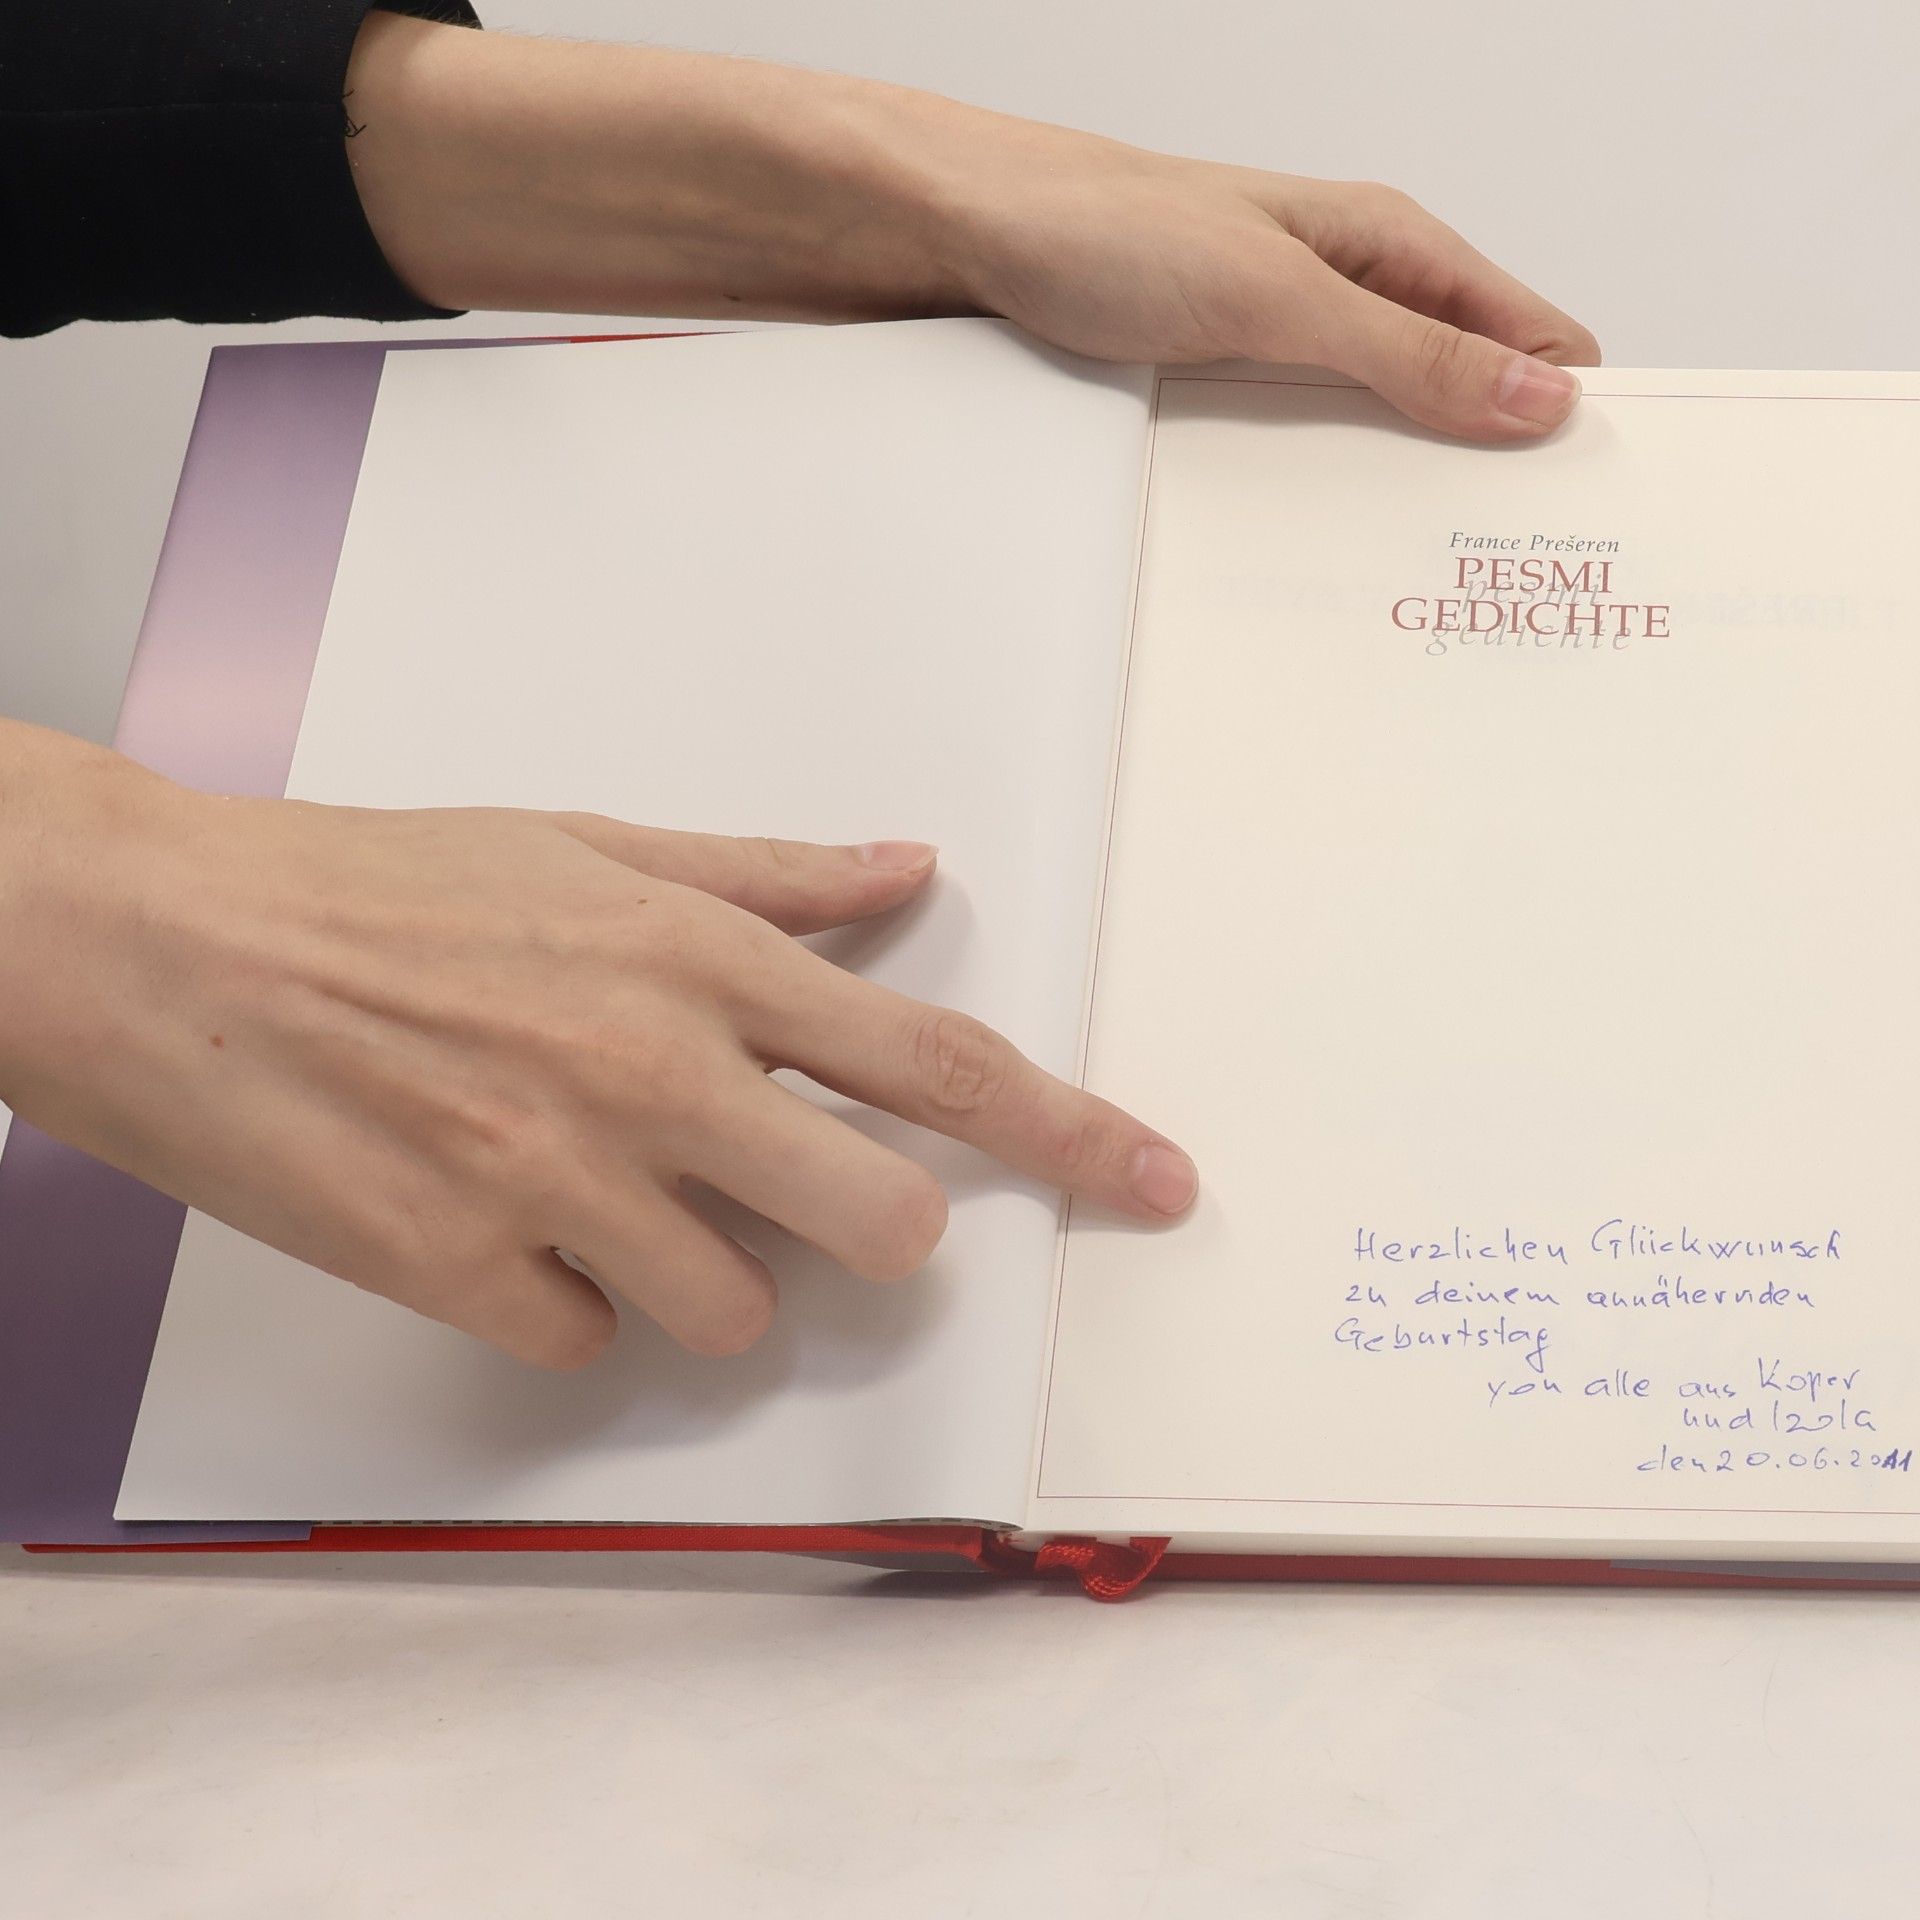 France Prešeren
PESMI
pesmi
GEDICHTE
gedichte
Herzlichen Glückwunsch
zu deinem annähernden
Geburtstag
von alle aus Koper
und Izola
den 20.06.2011